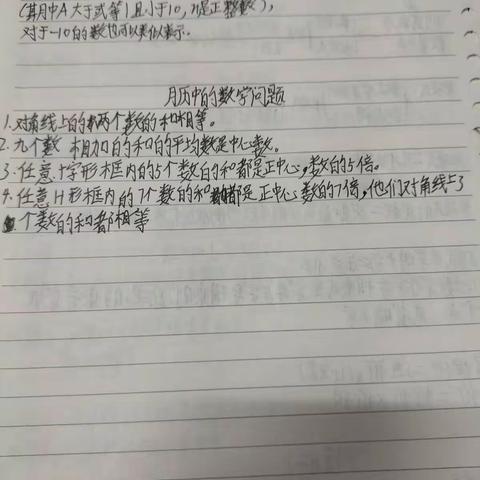 (其中A大于或等1且小于10,n是正整数),
对于-10的数也可以类似表示.
月历中的数学问题
1.对角线上的两个数的和相等。
2.九个数 相加的和的平均数是中心数。
3.任意十字形框内的5个数的和都是正中心数的5倍。
4.任意H形框内的7个数的和都是正中心数的7倍,他们对角线上3
个数的和都相等